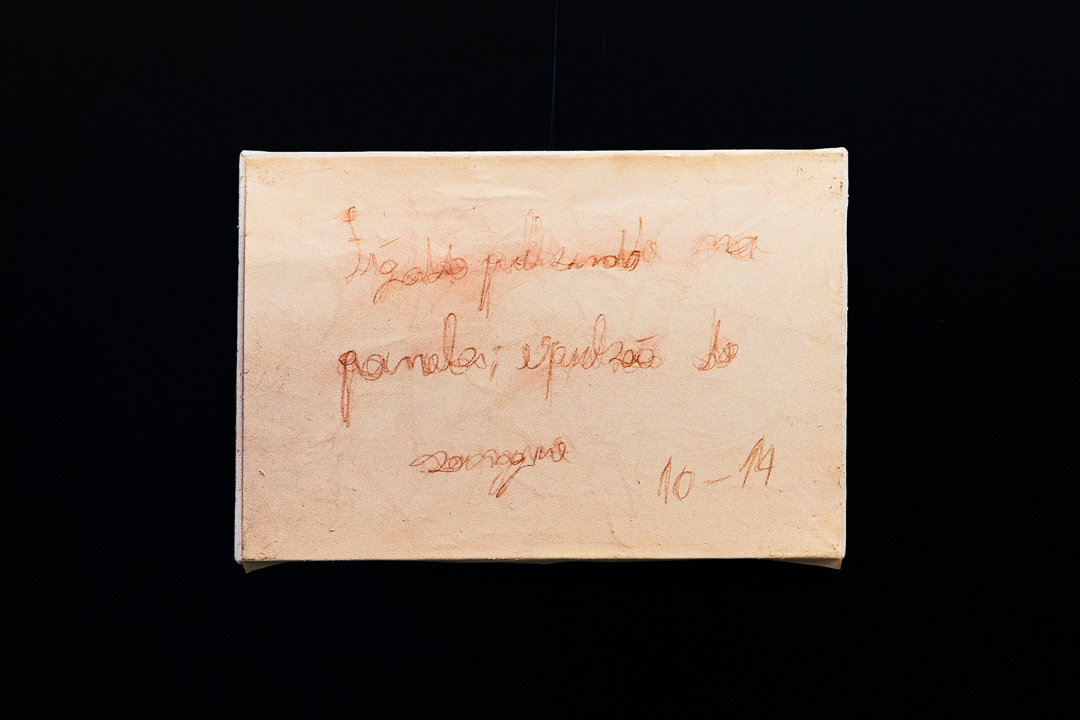 Fígado pulsando na
panela; expulsão do
sangue 10-14